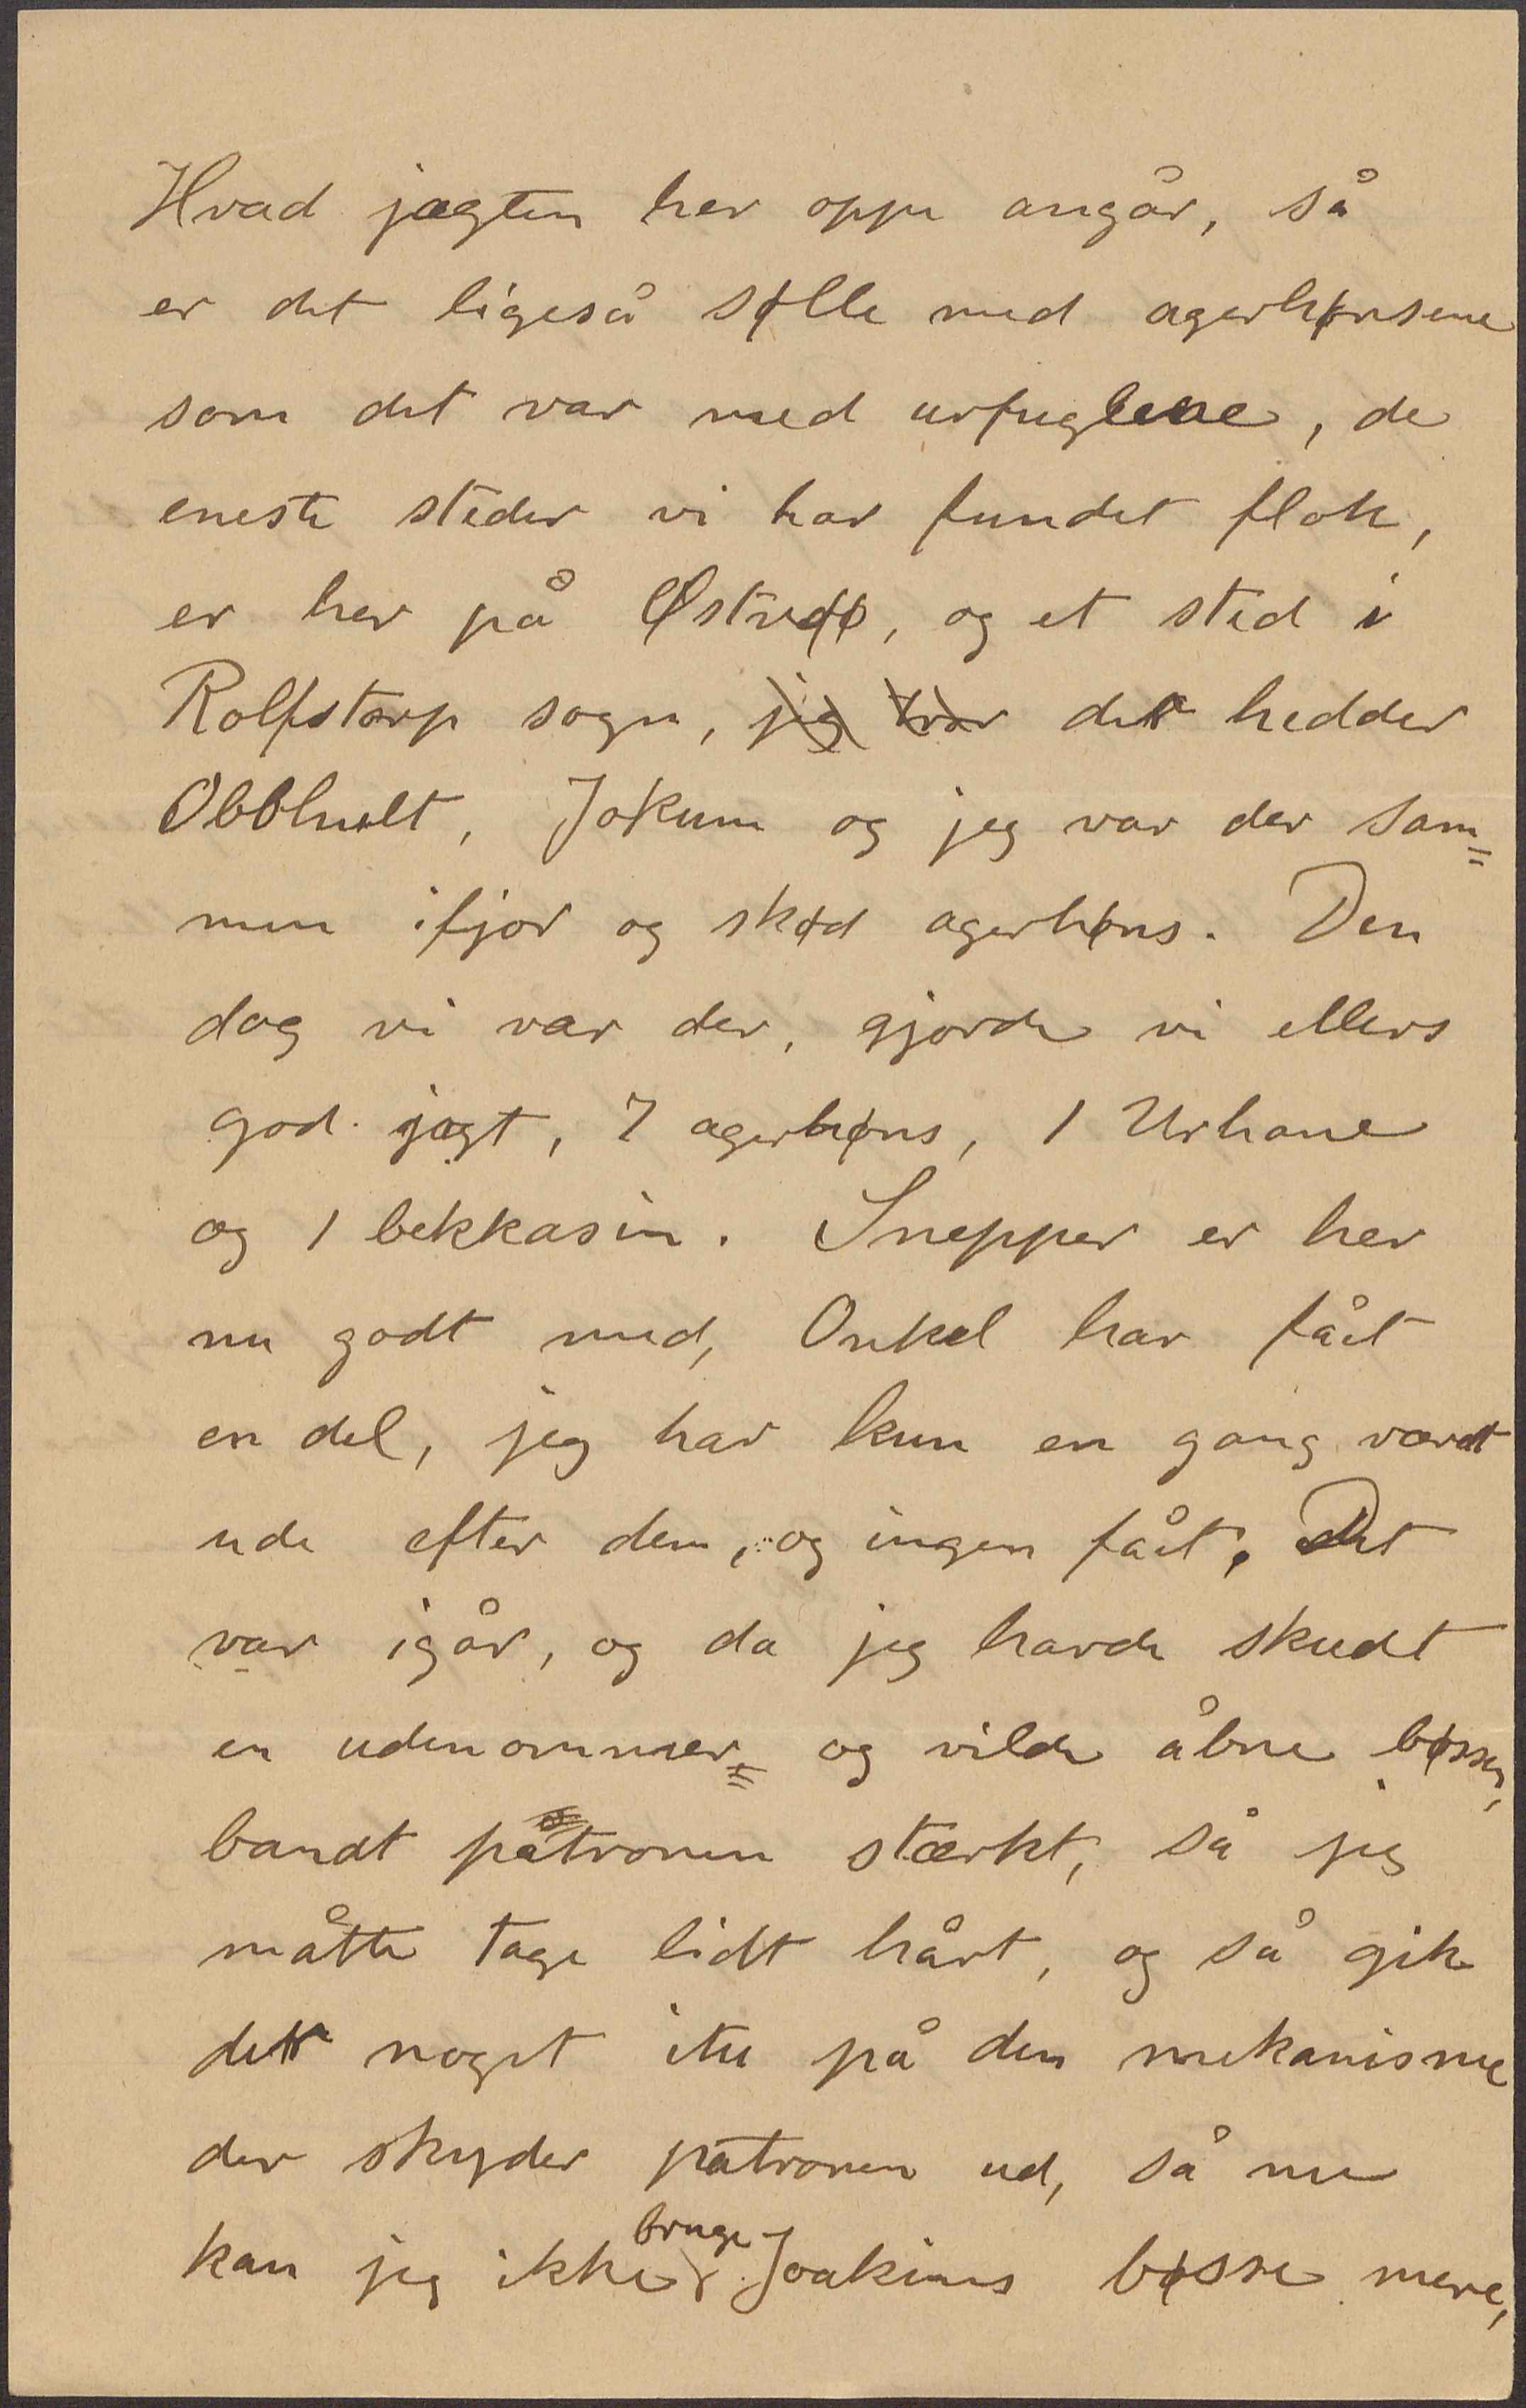 Hvad jagten her oppe angår, så
er det ligeså sølle med agerhønsene
som det var med urfuglene, de
eneste steder vi har fundet flok,
er her på Østredø, og et sted i
Rolfstorp sogn, jeg var det hedder
Obbhult, Jokum og jeg var der sam=
men ifjor og skød agerhøns. Den
dag vi var der, gjorde vi ellers
god jagt, 7 agerhøns, 1 Urhane
og 1 bekkasin. Snepper er her
nu godt med, Onkel har fået
en del, jeg har kun en gang været
ude efter dem, og ingen fået. Det
var igår, og da jeg havde skudt
en udenommer= og vilde åbne bøssen,
bandt patronen stærkt, så jeg
måtte tage lidt hårt, og så gik
der noget itu på den mekanisme
der skyder patronen ud, så nu
kan jeg ikke bruge Joakims bøsse mere,